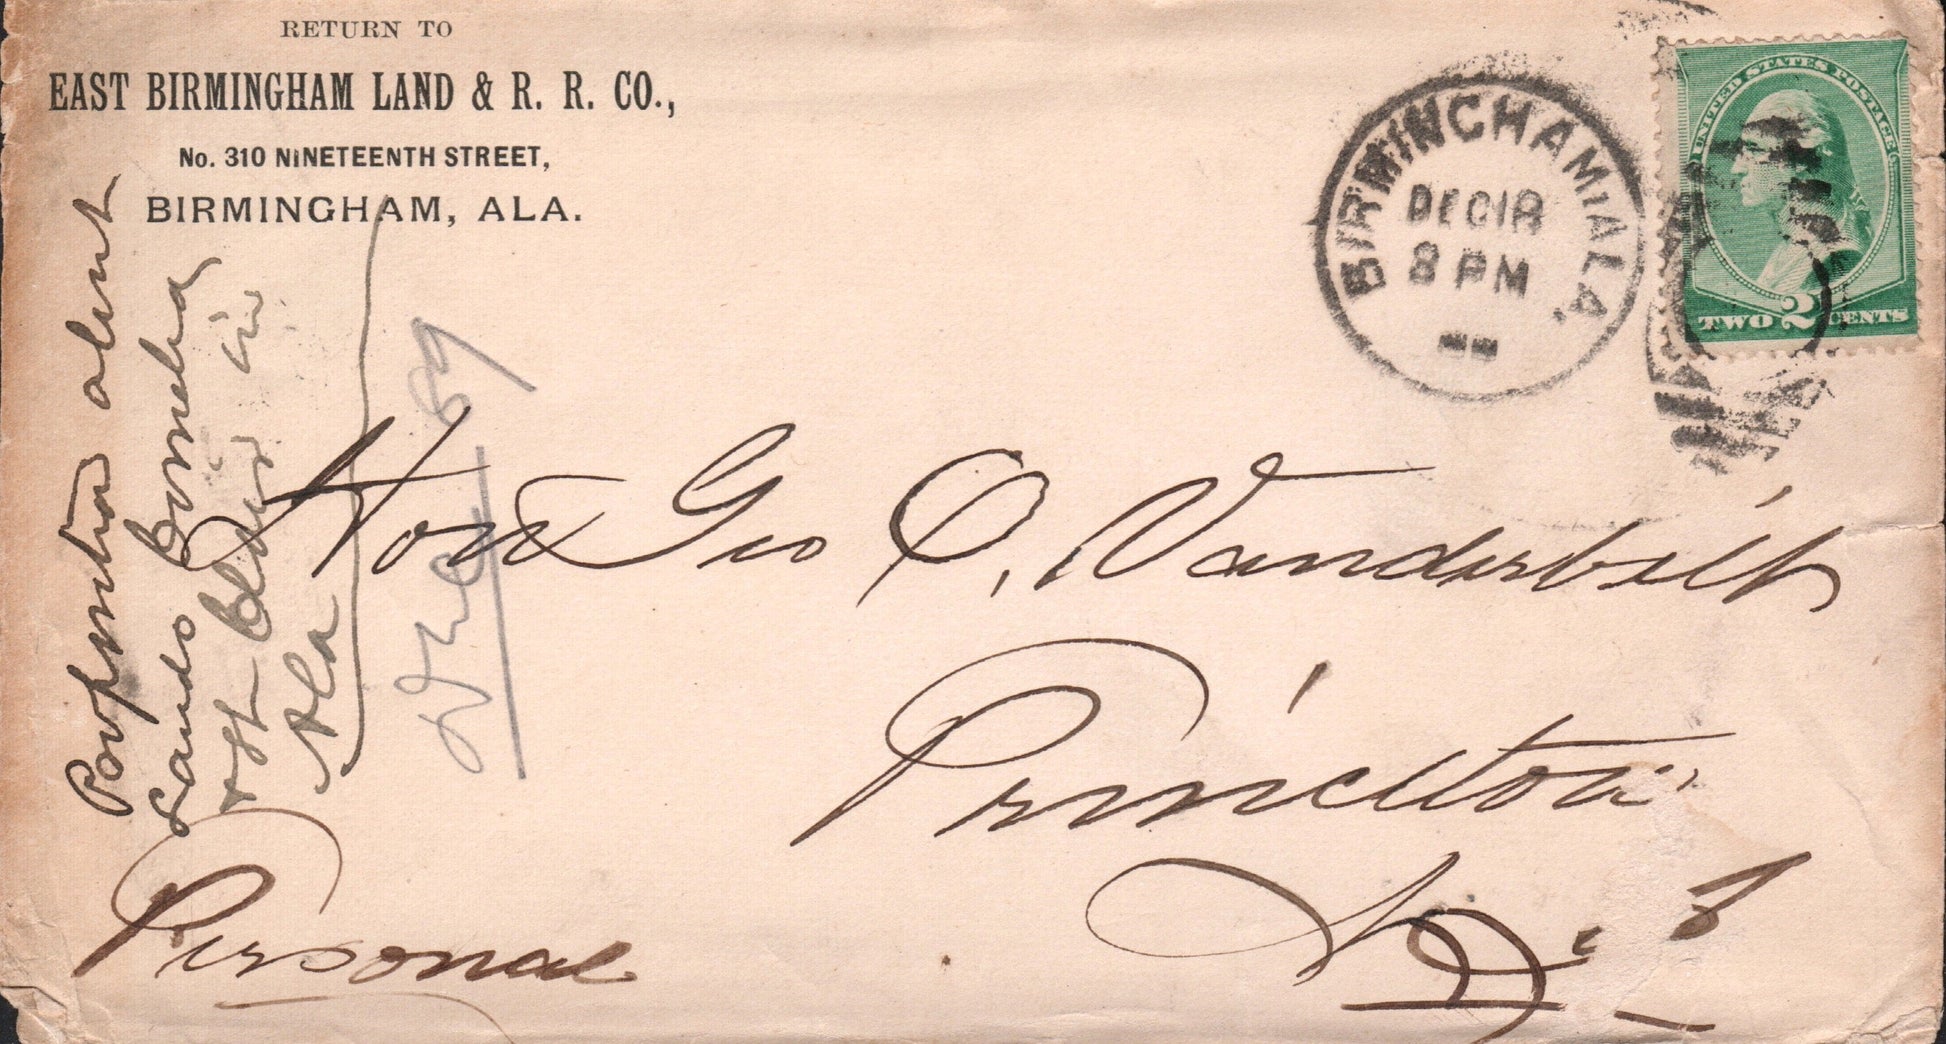 RETURN TO
EAST BIRMINGHAM LAND & R. R. CO.,
No. 310 NINETEENTH STREET,
BIRMINGHAM, ALA.
BIRMINGHAM, ALA.
DEC 18
8 PM
UNITED STATES POSTAGE
TWO 2 CENTS
Proposition about
Lands
St Clair in
Ala
89
Hon Geo O. Vanderbilt
Princeton
N. J.
Personal